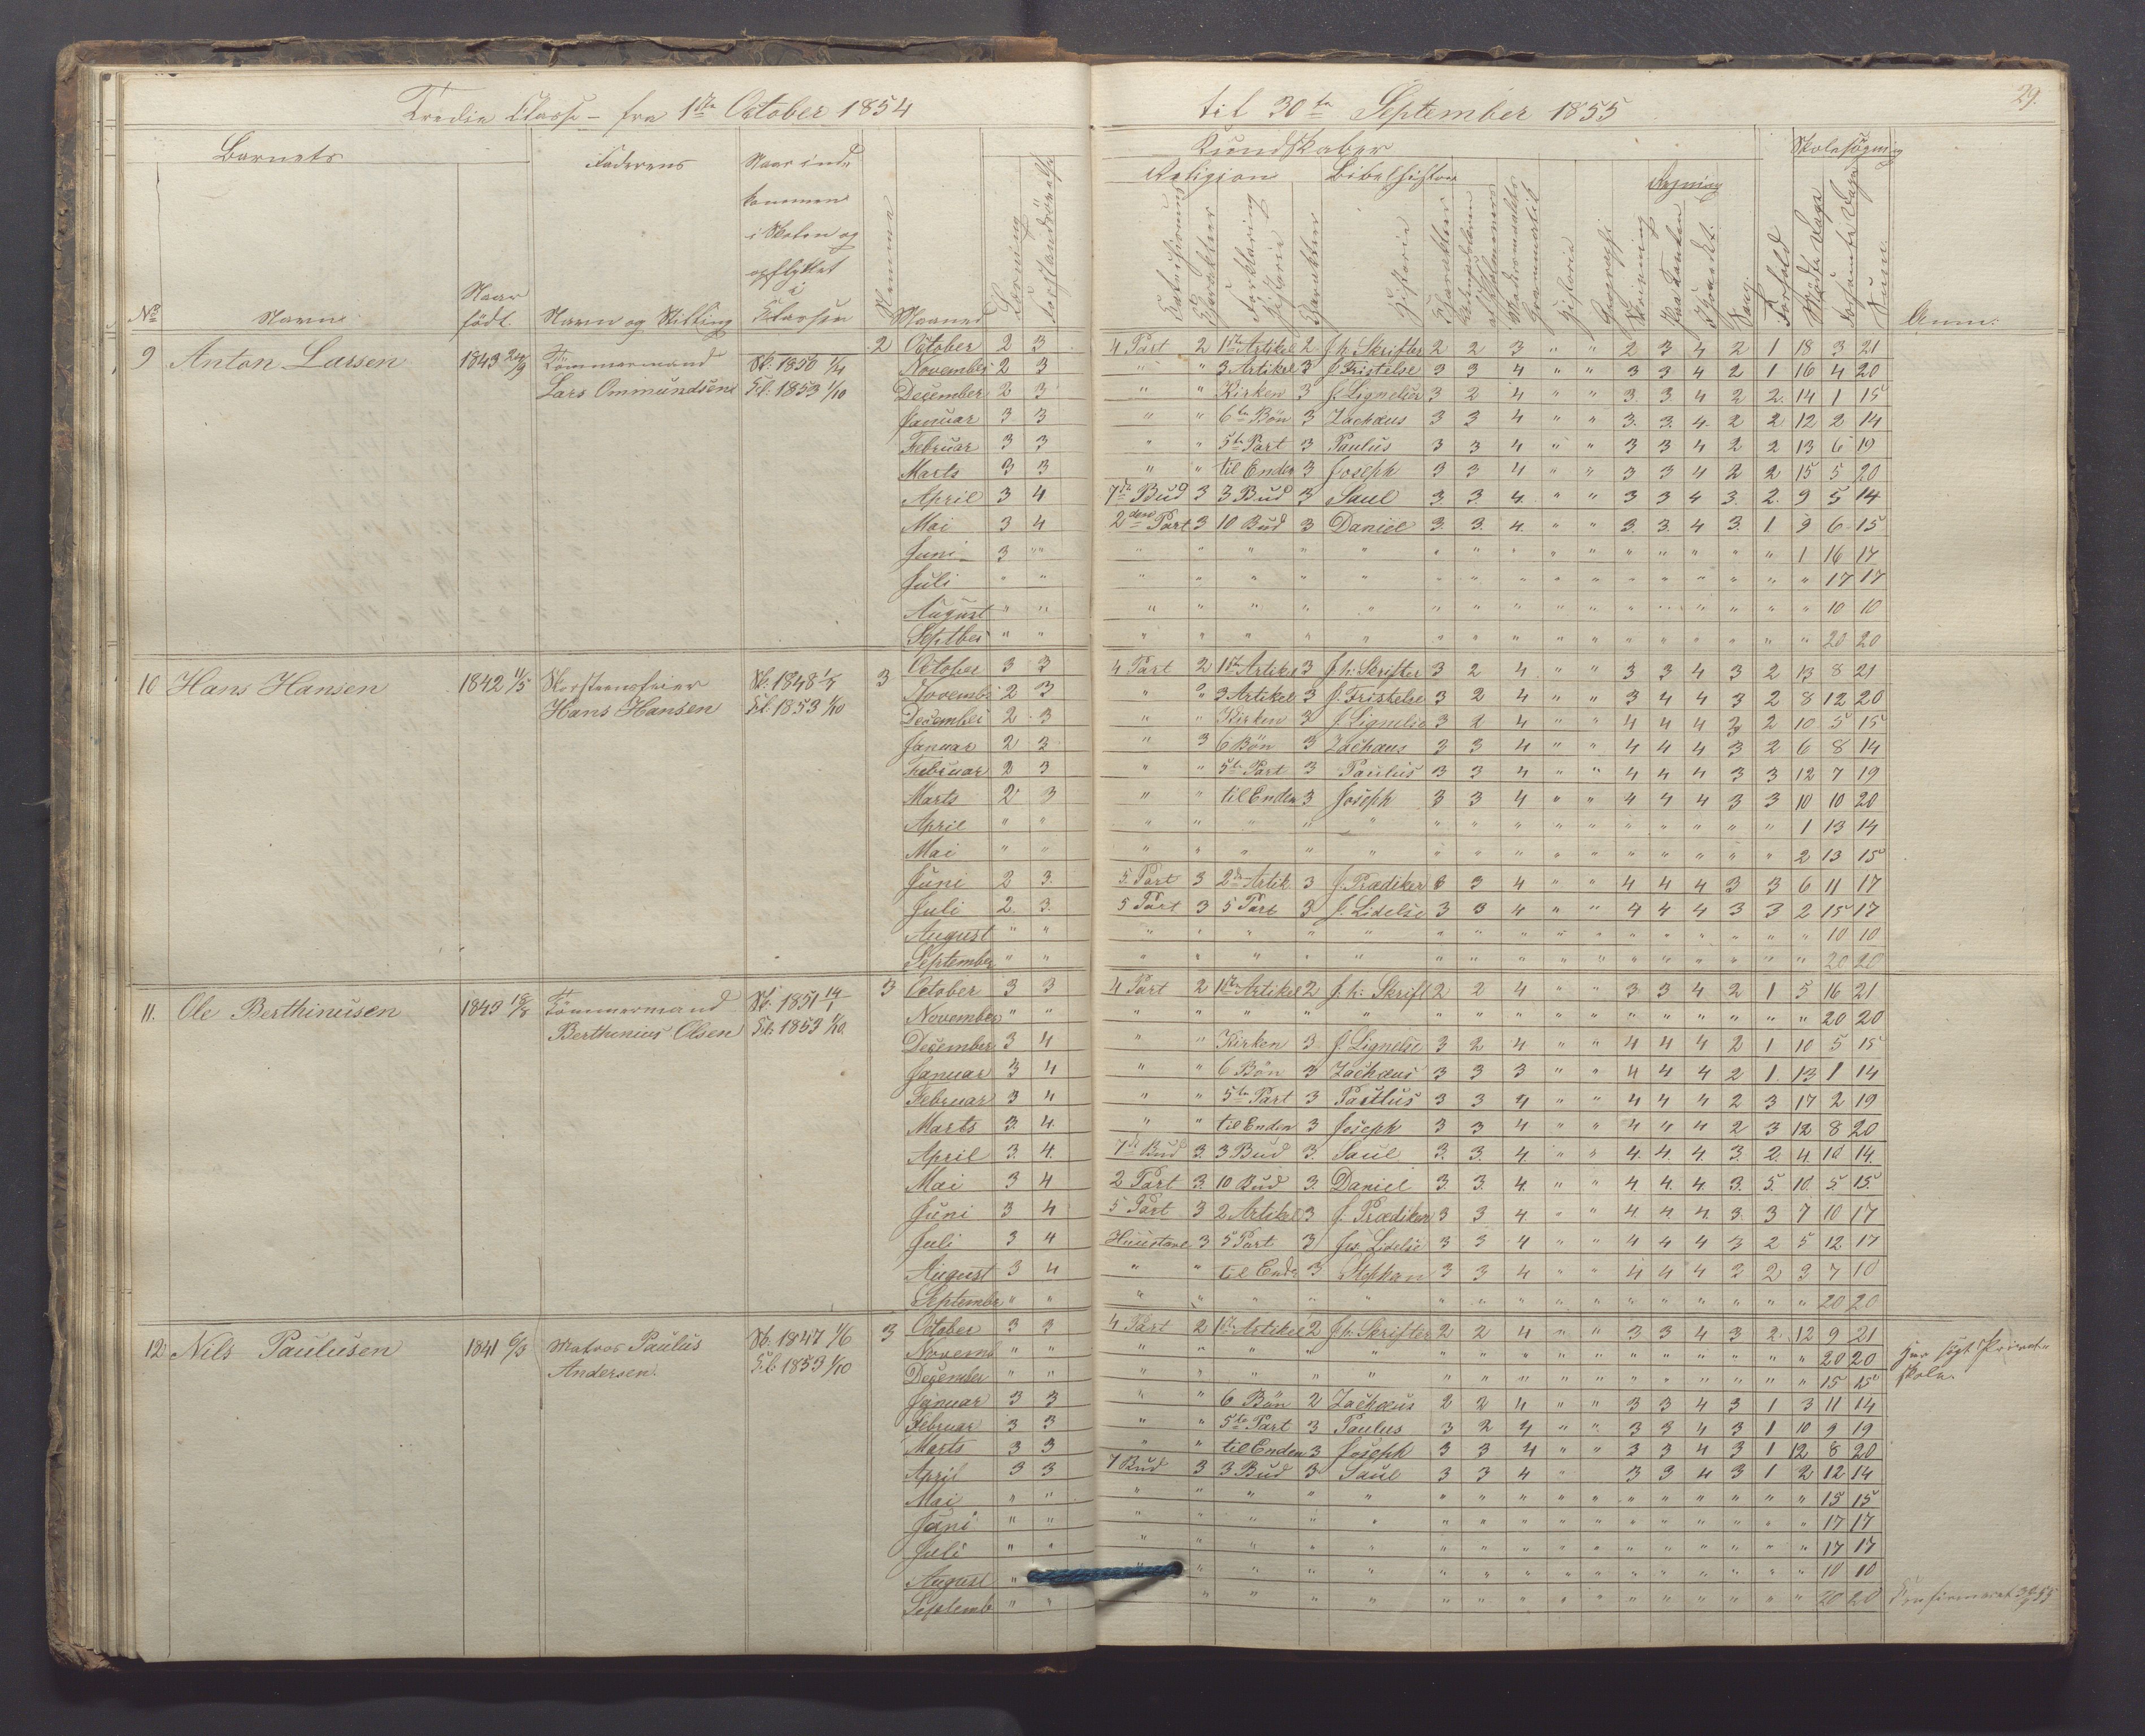 Tredie Classe - fra 1ste October 1854 til 30te September 1855 29.
Barnets Faderens Naar ind- Kundskaber Skolesøgning
kommen Religion Bibelhistorie Regning
i Skolen og
opflyttet
i
No Navn Naar født. Navn og Stilling Klassen Nummer Maaned Læsning Forhold Mødte Dage Forsømte Dage Sum Anm.
9 Anton Larsen 1843 24/9 Tømmermand Sk. 1850 1/4 2 October 2 3 4 Part 2 1ste Artikel 2 J. h. Skrifter 2 2 3 " " 2 3 4 2 1 18 3 21
Lars Ommundsen Kl. 1853 1/10 November 2 3 " " 3 Artikel 3 J. Fristelse 3 3 4 " " 3 3 4 2 1 16 4 20
December 2 3 " " Kirken 3 J. Lignelser 3 2 4 " " 3. 3. 4 2 2. 14 1 15
Januar 3 3 " " 6te Bön 3 Zachæus 3 3 4 " " 3. 3. 4. 2 2 12 2 14
Februar 3 3 " " 5te Part 3 Paulus 3 3 4 " " 3 3 4 2 2 13 6 19
Marts 3 3 " " til Enden 3 Joseph 3 3 4 " " 3 3 4 2 2 15 5 20
April 3 4 7de Bud 3 3 Bud 3 Saul 3 3. 4. " " 3 3 4 3. 2. 9 5 14
Mai 3 4 2den Part 3 10 Bud 3 Daniel 3. 3. 4. " " 3. 3. 4 3. 1. 9 6 15
Juni 3 " " " " " " " " " " " " " " " " 1 16 17
Juli " " " " " " " " " " " " " " " " " " 17 17
August " " " " " " " " " " " " " " " " " " 10 10
Septber " " " " " " " " " " " " " " " " " " 20 20
10 Hans Hansen 1842 11/5 Skorsteensfeier Sk. 1848 1/5 3 October 3 3 4 Part 2 1ste Artikel 3 J. h: Skrifter 3 2 4 " " 3 3 4 3 2 13 8 21
Hans Hansen Kl. 1853 1/10 Novemb 2 3 " " 3 Artikel 3 J. Fristelse 3 2 4 " " 3 4 4 3 2 8 12 20
December 2 3 " " Kirken 3 J. Lignelse 3 2 4 " " 4 4 4 3 2 10 5 15
Januar 2 3 " 3 6 Bön 3 Zachæus 3 3 4 " " 4 4 4 3 2 6 8 14
Februar 2 3 " " 5te Part 3 Paulus 3 3 4 " " 4 4 4 3 3 12 7 19
Marts 2 3 " " til Enden 3 Joseph 3 3 4 " " 4 4 4 3 3 10 10 20
April " " " " " " " " " " " " " " " " " 1 13 14
Mai " " " " " " " " " " " " " " " " " 2 13 15
Juni 2 3. 5. Part 3 2de Artik 3 J. Prædiken 3 3 4 " " 4 4 4 3 3 6 11 17
Juli 2. 3. 5 Part 3 5 Part 3 J. Lidelse 3 3 4 " " 4 4 4 3 3 2 15 17
August " " " " " " " " " " " " " " " " " " 10 10
September " " " " " " " " " " " " " " " " " " 20 20
11. Ole Berthinusen 1843 18/8 Tømmermand Sk. 1851 14/1 3 October 3 3 4 Part 2 1ste Artikel 2 J. h: Skrift 2 2 4 " " 3 3 4 2 1 5 16 21
Berthenius Olsen Kl. 1853 1/10 November " " " " " " " " " " " " " " " " " " 20 20
December 3 4 " " Kirken 3 J. Lignelse 3 2 4 " " 4 4 4 2 1 10 5 15
Januar 3 4 " " 6 Bön 3 Zachæus 3 3 3 " " 4 4 4 2 1. 13 1 14
Februar 3 4 " " 5te Part 3 Paulus 3 3 4 " " 4 4 4 2 3 17 2 19
Marts 3. 4. " " til Enden 3 Joseph 3 3 4 " " 4 4 4 2 3 12 8 20
April 3. 4. 7de Bud 3. 3 Bud 3. Saul 3. 3. 4. " " 4. 4. 4. 3. 2. 4. 10 14.
Mai 3 4 2 Part 3. 10 Bud 3. Daniel 3. 3. 4. " " 4. 4. 4. 3. 5. 10. 5. 15.
Juni 3 4 5 Part 3 2 Artikel 3 J. Prædiken 3 3 4. " " 4. 4. 4. 3. 3 7 10 17
Juli 3 4 Huustavl 3 5 Part 3 Jes. Lidelse 3 3 4 " " 4 4 4 3 2 5 12 17
August 3 4 " " til Ende 3 Stephan 3 3 4 " " 4 4 4 3 2 3 7 10
Septembr " " " " " " " " " " " " " " " " " " 20 20
12. Nils Paulusen 1841 6/3 Matros Paulus Sk. 1847 1/6 3 October 3 3 4 Part 2 1ste Artikel 2 J. h: Skrifter 2 2 4 " " 3 3 4 3 2 12 9 21
Andersen. Kl. 1853 1/10 Novemb " " " " " " " " " " " " " " " " " " 20 20 har søgt Privat-
December " " " " " " " " " " " " " " " " " " 15 15 skole.
Januar 3 3 " " 6 Bön 2 Zachæus 2 2 4 " " 3 3 4 3 1 3 11 14
Februar 3 3 " " 5te Part 3 Paulus 3 2 4 " " 3 3 4 3 1 10 9 19
Marts 3 3 " " til Enden 3 Joseph 3 3 4 " " 3 3 4 3 1 12 8 20
April 3 3 7 Bud 3 3 Bud 3 Saul 3 3 4 " 3 3 4 3 1 2 12 14
Mai " " " " " " " " " " " " " " " " " " 15 15
Juni " " " " " " " " " " " " " " " " " " 17 17
Juli " " " " " " " " " " " " " " " " " " 17 17
August " " " " " " " " " " " " " " " " " 10 10
Septemb " " " " " " " " " " " " " " " " " 20 20 Confirmeret